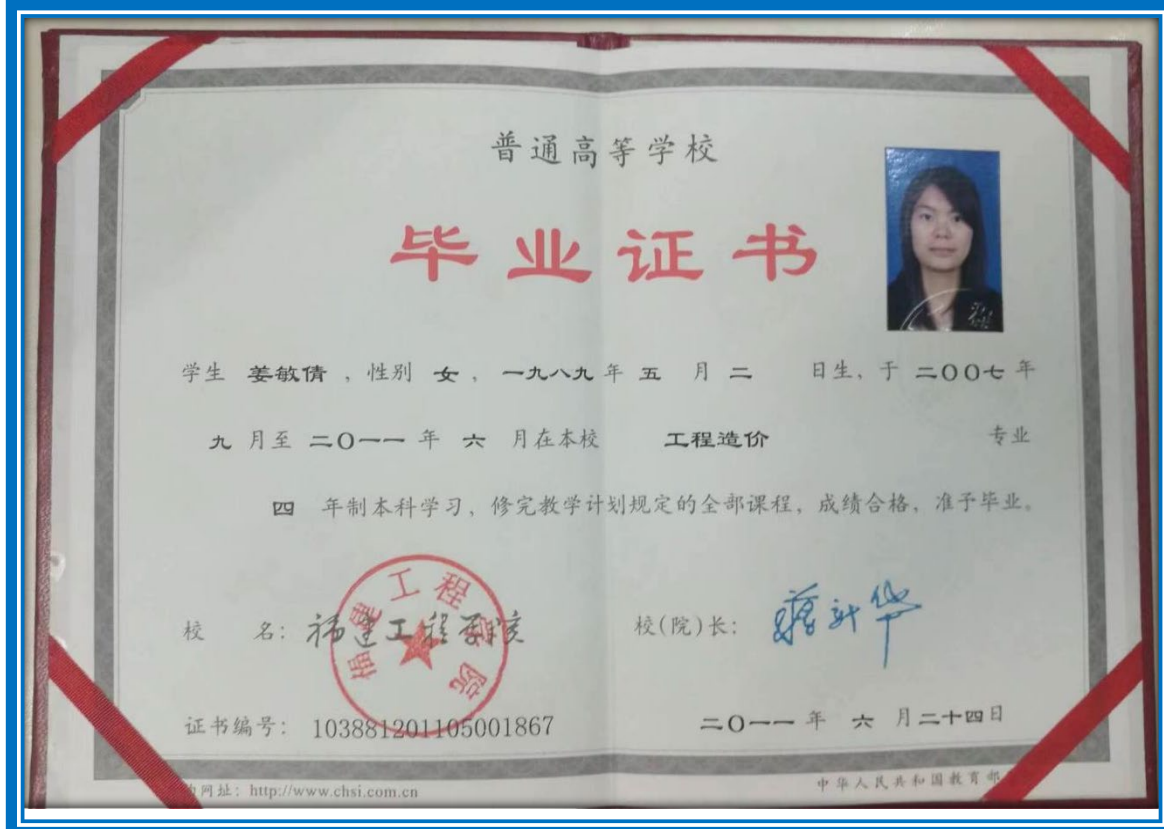 普通高等学校
毕业证书
学生 姜敏倩 ，性别 女 ，一九八九年 五 月 二 日生，于 二〇〇七 年
九 月至 二〇一一 年 六 月在本校 工程造价 专业
四 年制本科学习，修完教学计划规定的全部课程，成绩合格，准予毕业。
福建工程学院
校 名：福建工程学院 校(院)长：蒋新华
证书编号：103881201105001867 二〇一一 年 六 月二十四日
网址：http://www.chsi.com.cn 中华人民共和国教育部